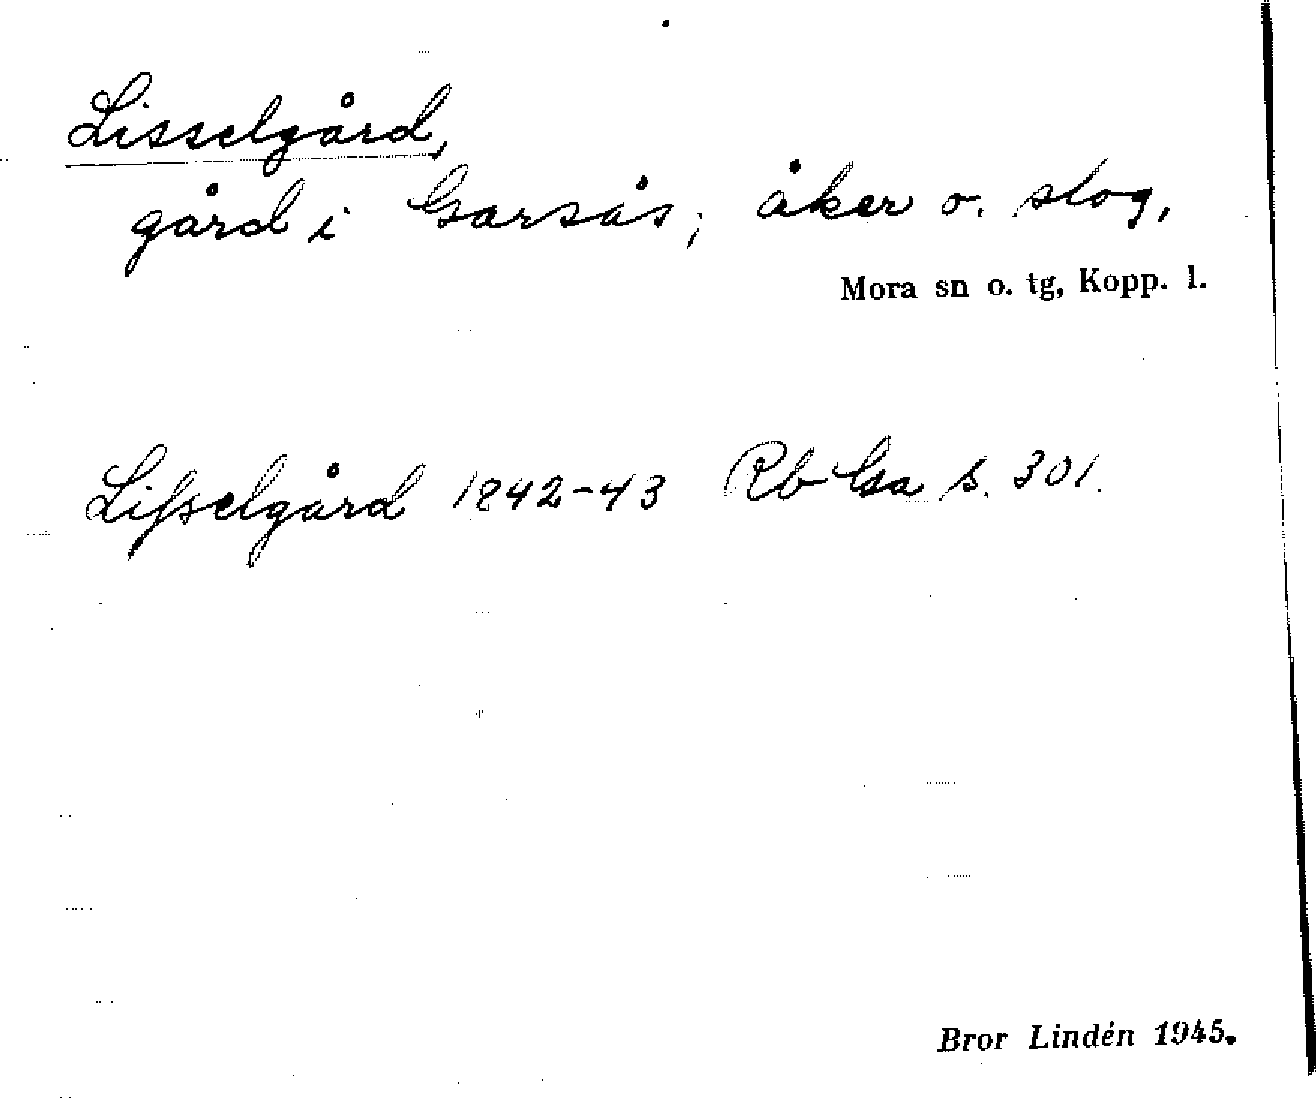 Lisselgård,
gård i Garsås; åker o. slog,
Mora sn o. tg, Kopp. l.
Lisselgård 1842-43 Rb Gsa s. 301.
Bror Lindén 1945.